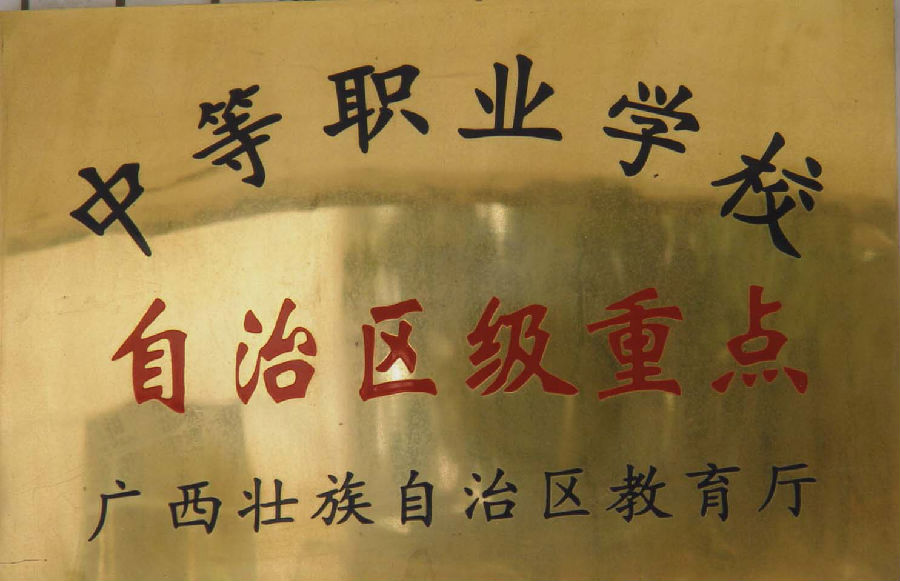 中等职业学校
自治区级重点
广西壮族自治区教育厅